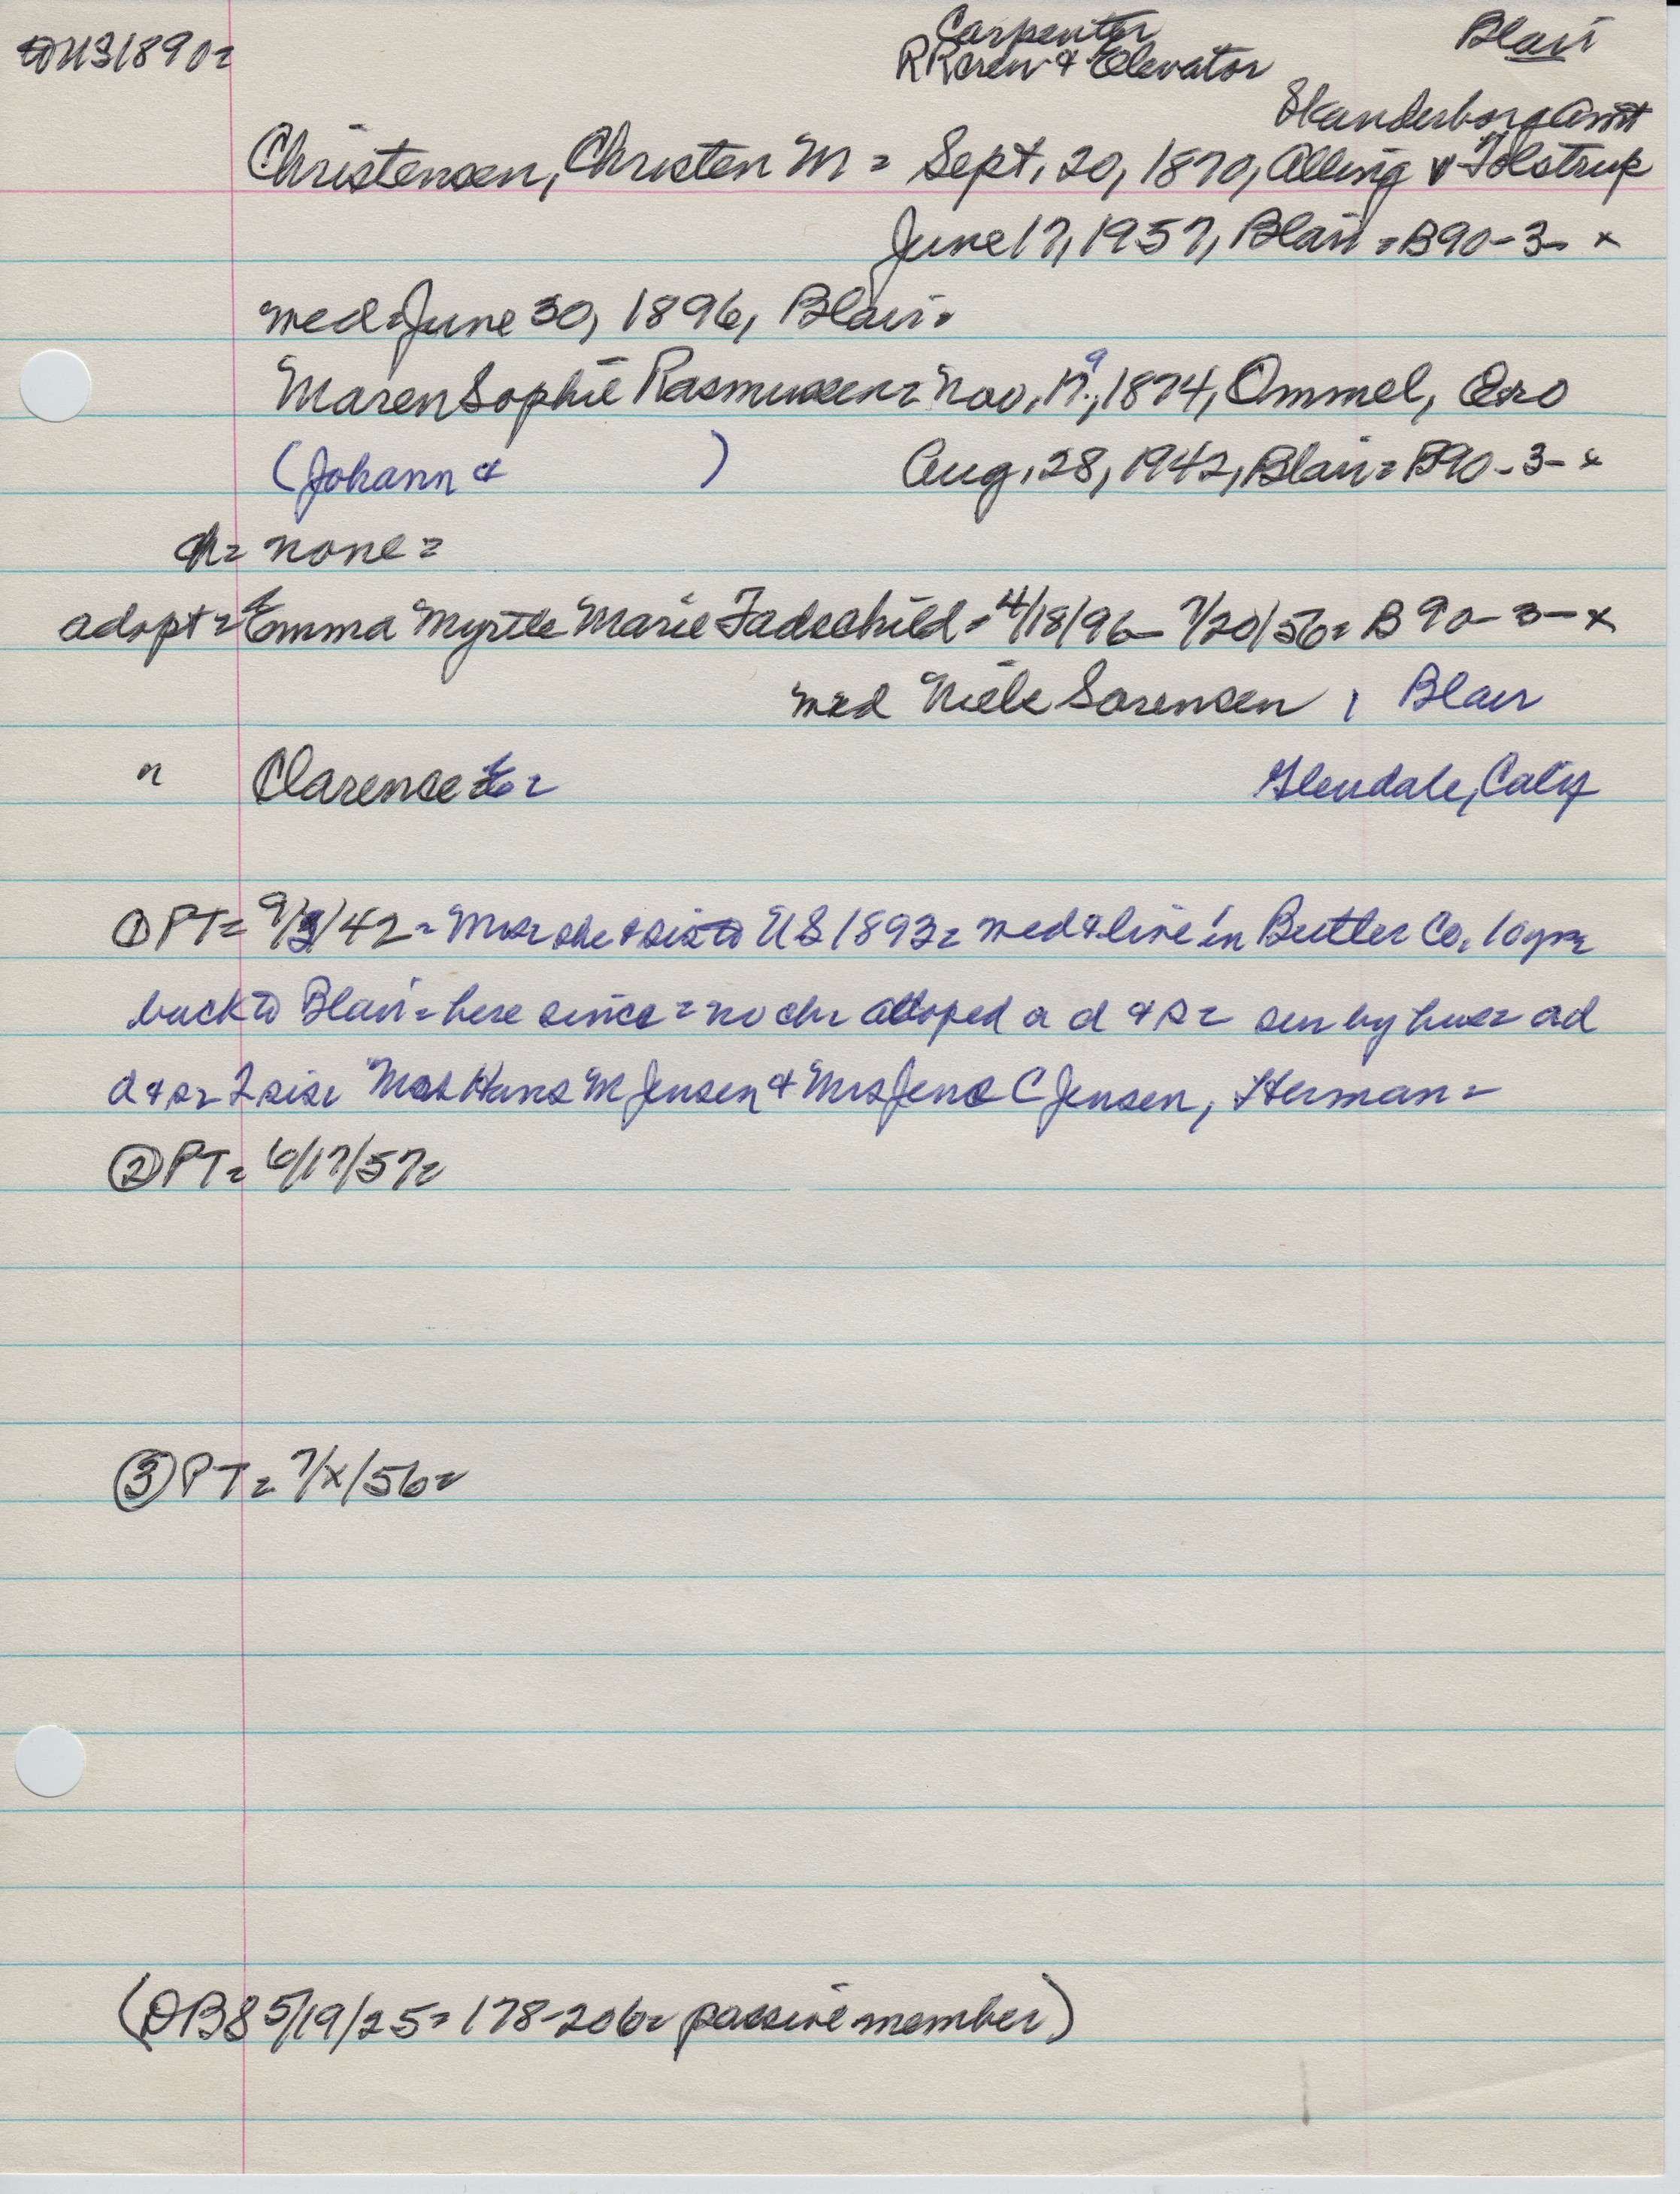 to US 1890=
Carpenter
RR crew & Elevator
Blair
Skanderborg Amt
Christensen, Christen M = Sept. 20, 1870, Alling v Tolstrup
June 17, 1957, Blair = B90-3-x
med = June 30, 1896, Blair =
Maren Sophie Rasmussen = Nov. 17, 9 1874, Ommel, Ero
(Johann & ) Aug. 28, 1942, Blair = B90-3-x
ch = none =
adopt = Emma Myrtle Marie Fadschild = 4/18/96 - 7/20/56 = B90-3-x
med Niels Sorensen, Blair
" Clarence = Glendale, Calif
① PT = 9/3/42 = Mrs = she & sis to US 1893 = med & live in Butler Co. 10 yrs
back to Blair = here since = no ch = adoped a d & s = sur by hus = ad
d & s = 2 sis = Mrs Hans M Jensen & Mrs Jens C Jensen, Herman =
② PT = 6/17/57 =
③ PT = 7/x/56 =
(DBS 5/19/25 = 178-206 = passive member)